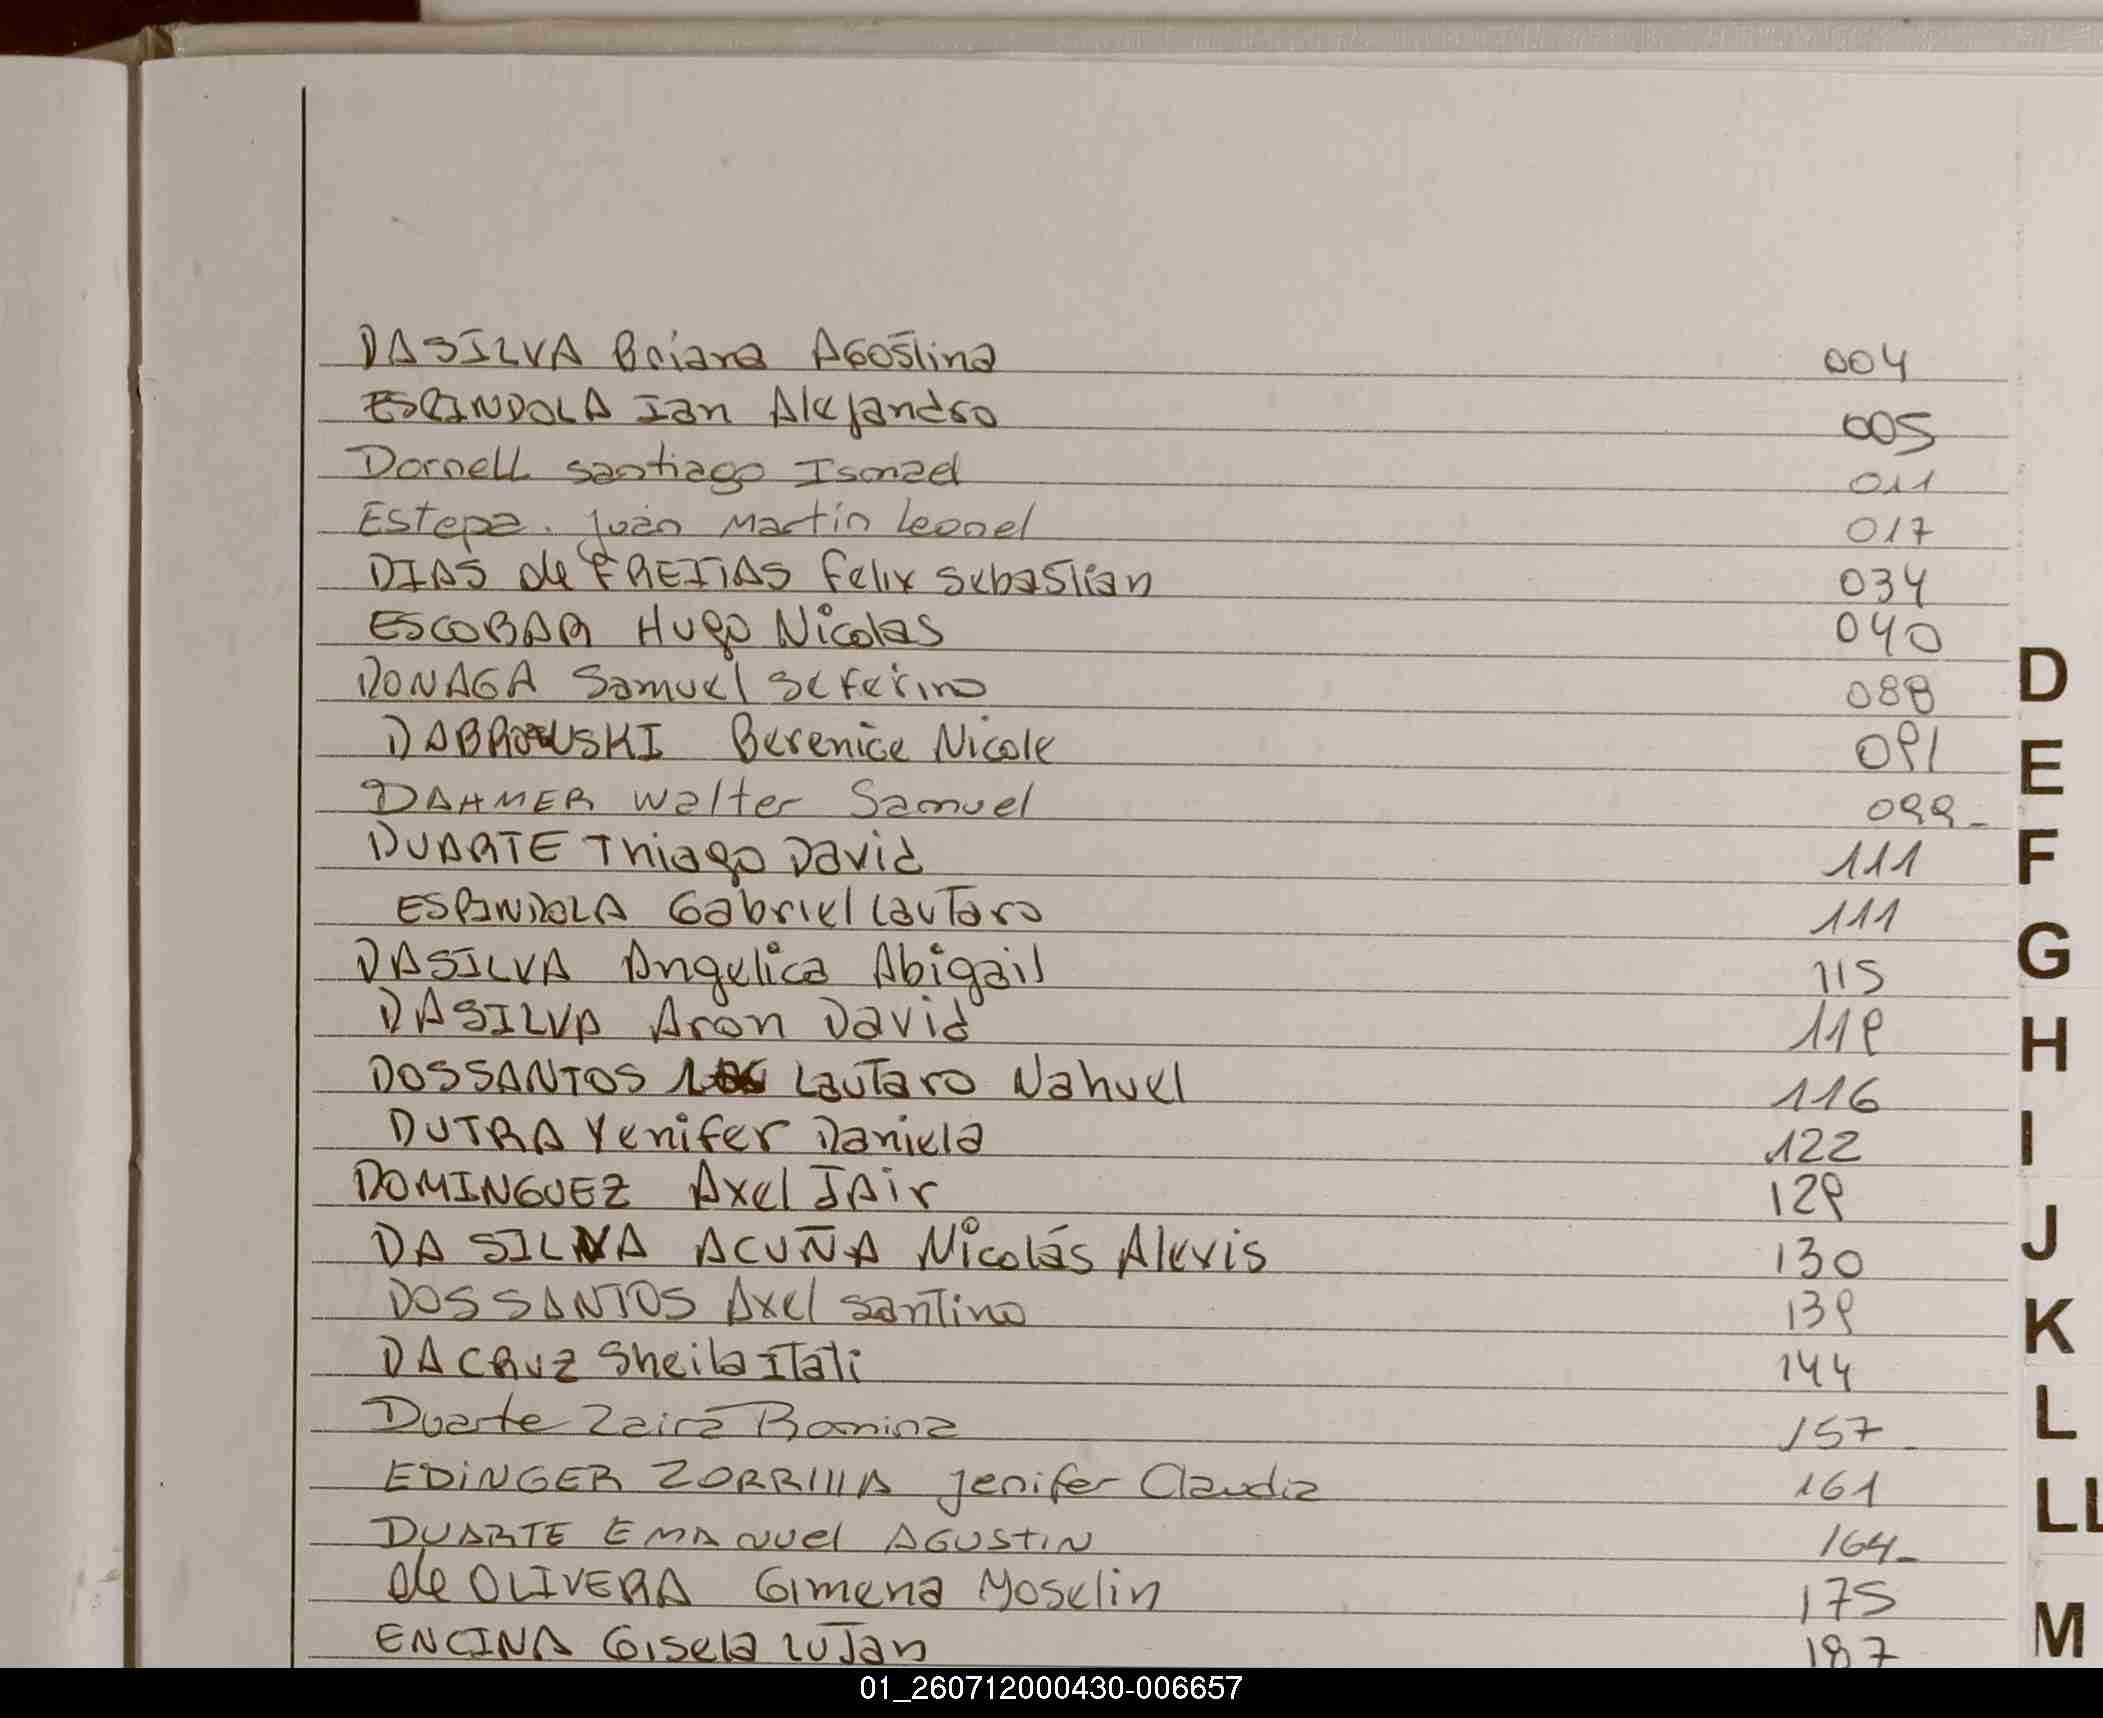 DASILVA Briana AGOStina 004
ESPINDOLA Ian Alejandro 005
Dornell Santiago Ismael 011
Estepa. Juan Martin Leonel 017
DIAS de FREITAS Felix Sebastian 034
ESCOBAR Hugo Nicolas 040
DONAGA Samuel Seferino 088
DABROWSKI Berenice Nicole 091
DAHMER Walter Samuel 099-
DUARTE Thiago David 111
ESPINDOLA Gabriel Lautaro 111
DASILVA Angelica Abigail 115
DASILVA Aron David 119
DOSSANTOS Lautaro Nahuel 116
DUTRA Yenifer Daniela 122
DOMINGUEZ Axel JAir 129
DA SILVA ACUÑA Nicolás Alexis 130
DOS SANTOS Axel Santino 139
DA CRUZ Sheila Itati 144
Duarte Zaira Romina 157
EDINGER ZORRIllA Jenifer Claudia 161
DUARTE EMANuel AGUStIN 164-
de OLIVERA Gimena Yoselin 175
ENCINA Gisela Lujan 187
D
E
F
G
H
I
J
K
L
LL
M
01_260712000430-006657